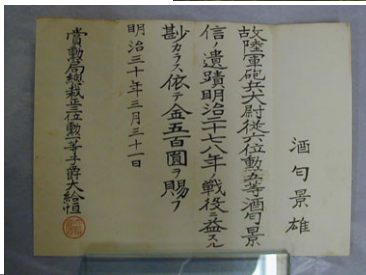 酒匂景雄
故陸軍砲兵大尉從六位勲五等酒匂景
信ノ遺蹟明治二十七八年ノ戰役ニ益スル
尠カラス依テ金五百圓ヲ賜フ
明治三十年三月三十一日
賞勲局總裁正三位勲一等子爵大給恒